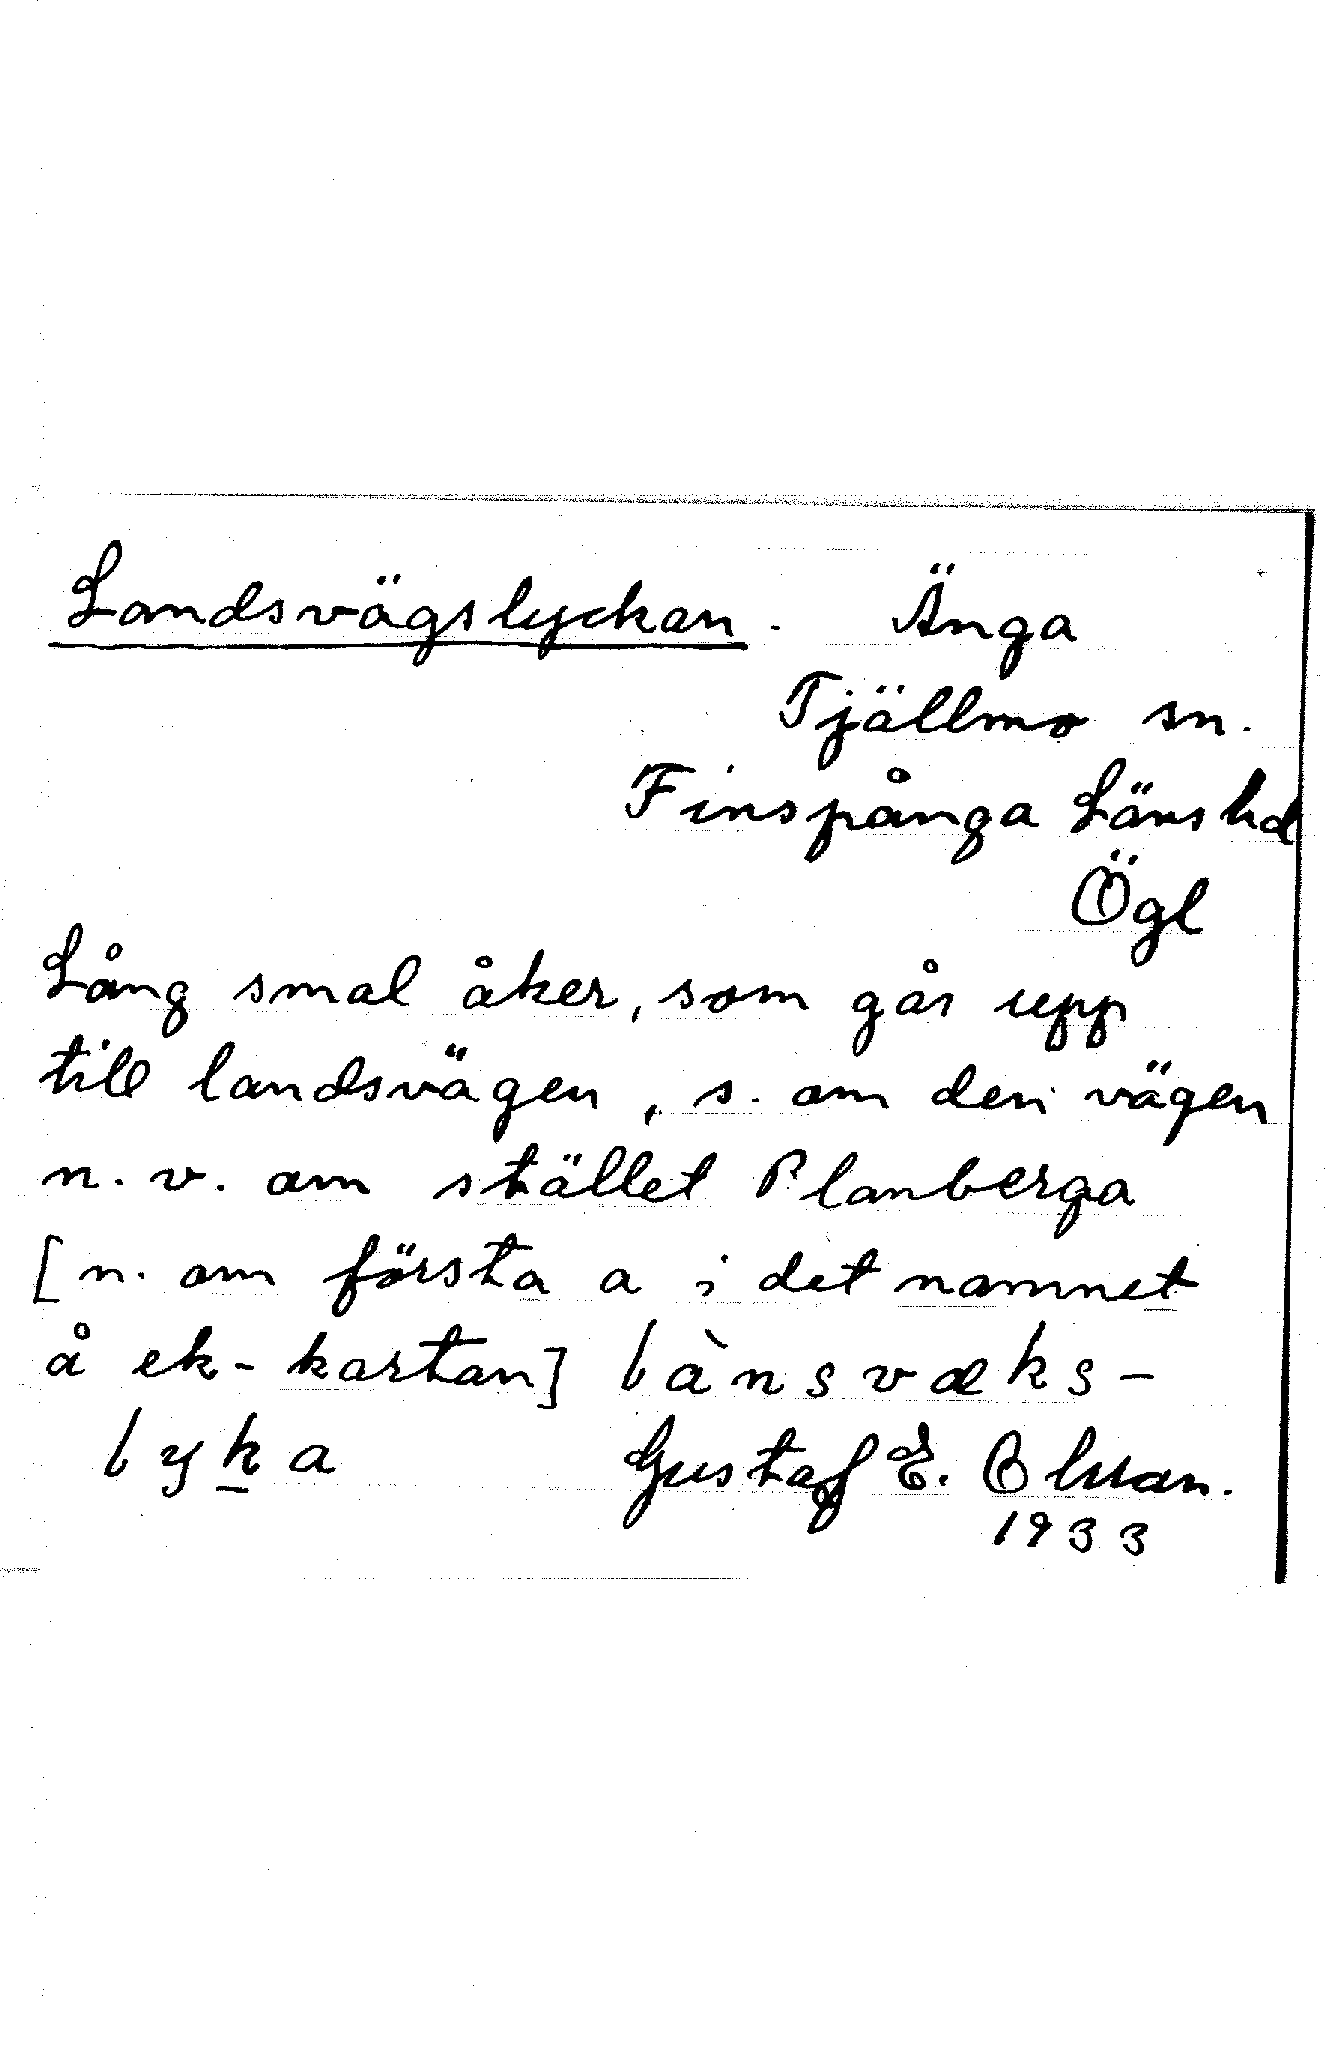 Landsvägslyckan. Änga
Tjällmo sn.
Finspånga Länshd
Ögl
Lång smal åker, som går upp
till landsvägen, s. om den vägen
n. v. om stället Planberga
[n. om första a i det namnet
å ek-kartan] lànsvæks-
lyka Gustaf E. Olsson.
1933